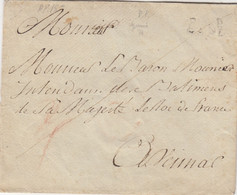 Monsieur
Monsieur Le Baron Mounier
Intendant des Batimens
de Sa Majesté Le Roi de France
à Weimar